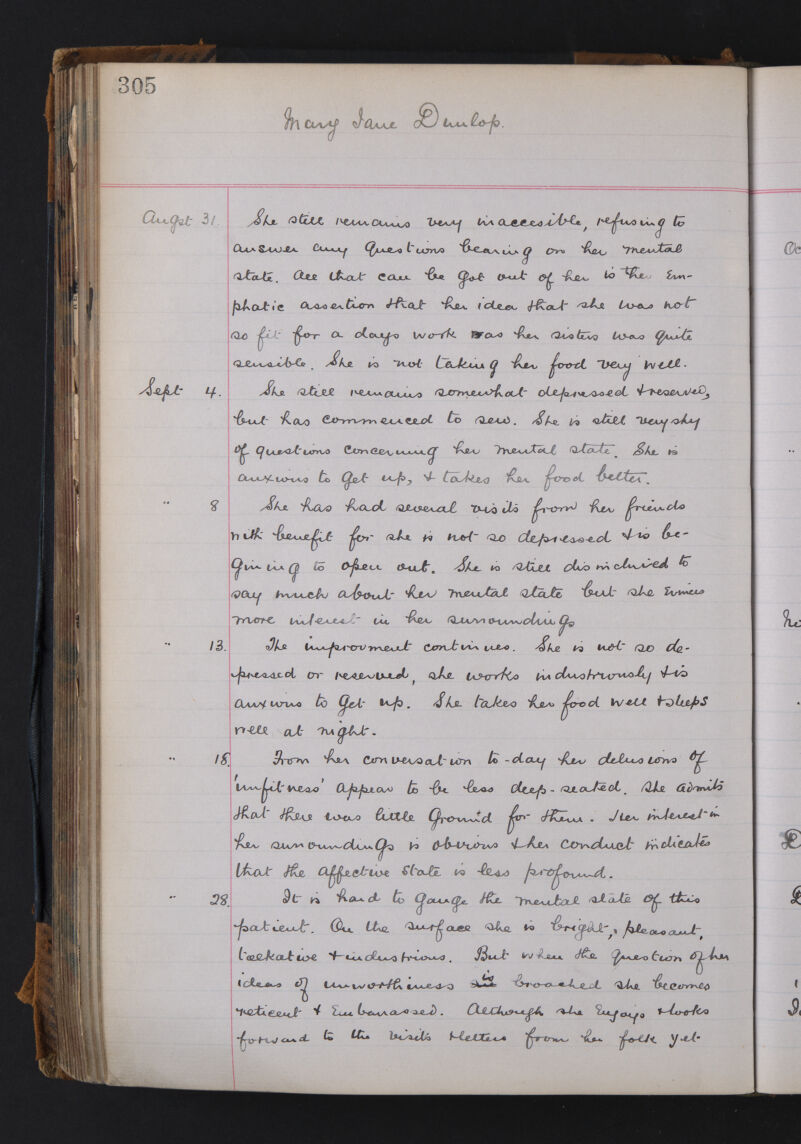 305
Mary Jane Dunlop.
Augst 31. She still remains very inaccesible, refusing to
answer any Questions bearing on her mental
state. All that can be got out of her is the em-
phatic assertion that her idea that she was not
so fit for a days work as her sisters was quite
sensible. She is not taking her food very well.
Sept 4. She still remains somewhat depressed & reserved,
but has commenced to sew. She is still very shy
of questions concerning her mental state. She is
anxious to get up, & takes her food better.
" 8 She has had several visits from her friends
with benefit for she is not so depressed & is be-
gining to open out. She is still disinclined to
say much about her mental state but she evinces
more interest in her surroundings
" 13. The improvment continues. She is not so de-
pressed or reserved, she works industriously & is
anxious to get up. She takes her food well & sleeps
well at night.
" 18. From her conversation to-day her delusions of
'unfitness' appear to be less deep-seated. She admits
that there was little ground for them. Her interest in
her surroundings is obvious & her conduct indicates
that the affective state is less profound.
" 28. It is hard to gauge the mental state of this
patient. On the surface she is bright, pleasant,
talkative & industrious. But when the question of her
ideas of unworthiness is broached she becomes
reticent & embarrassed. Although she enjoys & looks
forward to the visits & letters from her folk yet